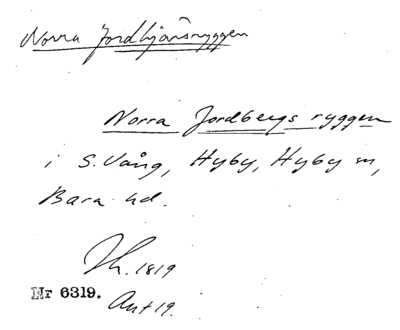 Norra Jordhjärsryggen
Norra Jordbergs ryggen
i S. Vång, Hyby, Hyby sn,
Bara hd.
Th. 1819
Nr 6319.
Akt 19.